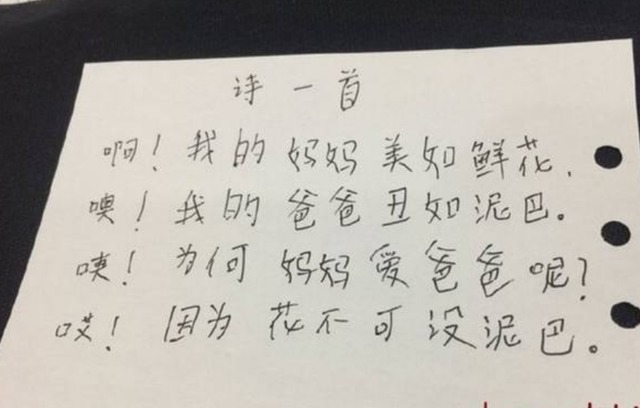 诗一首
啊！我的妈妈美如鲜花，
噢！我的爸爸丑如泥巴。
咦！为何妈妈爱爸爸呢？
哎！因为花不可没泥巴。